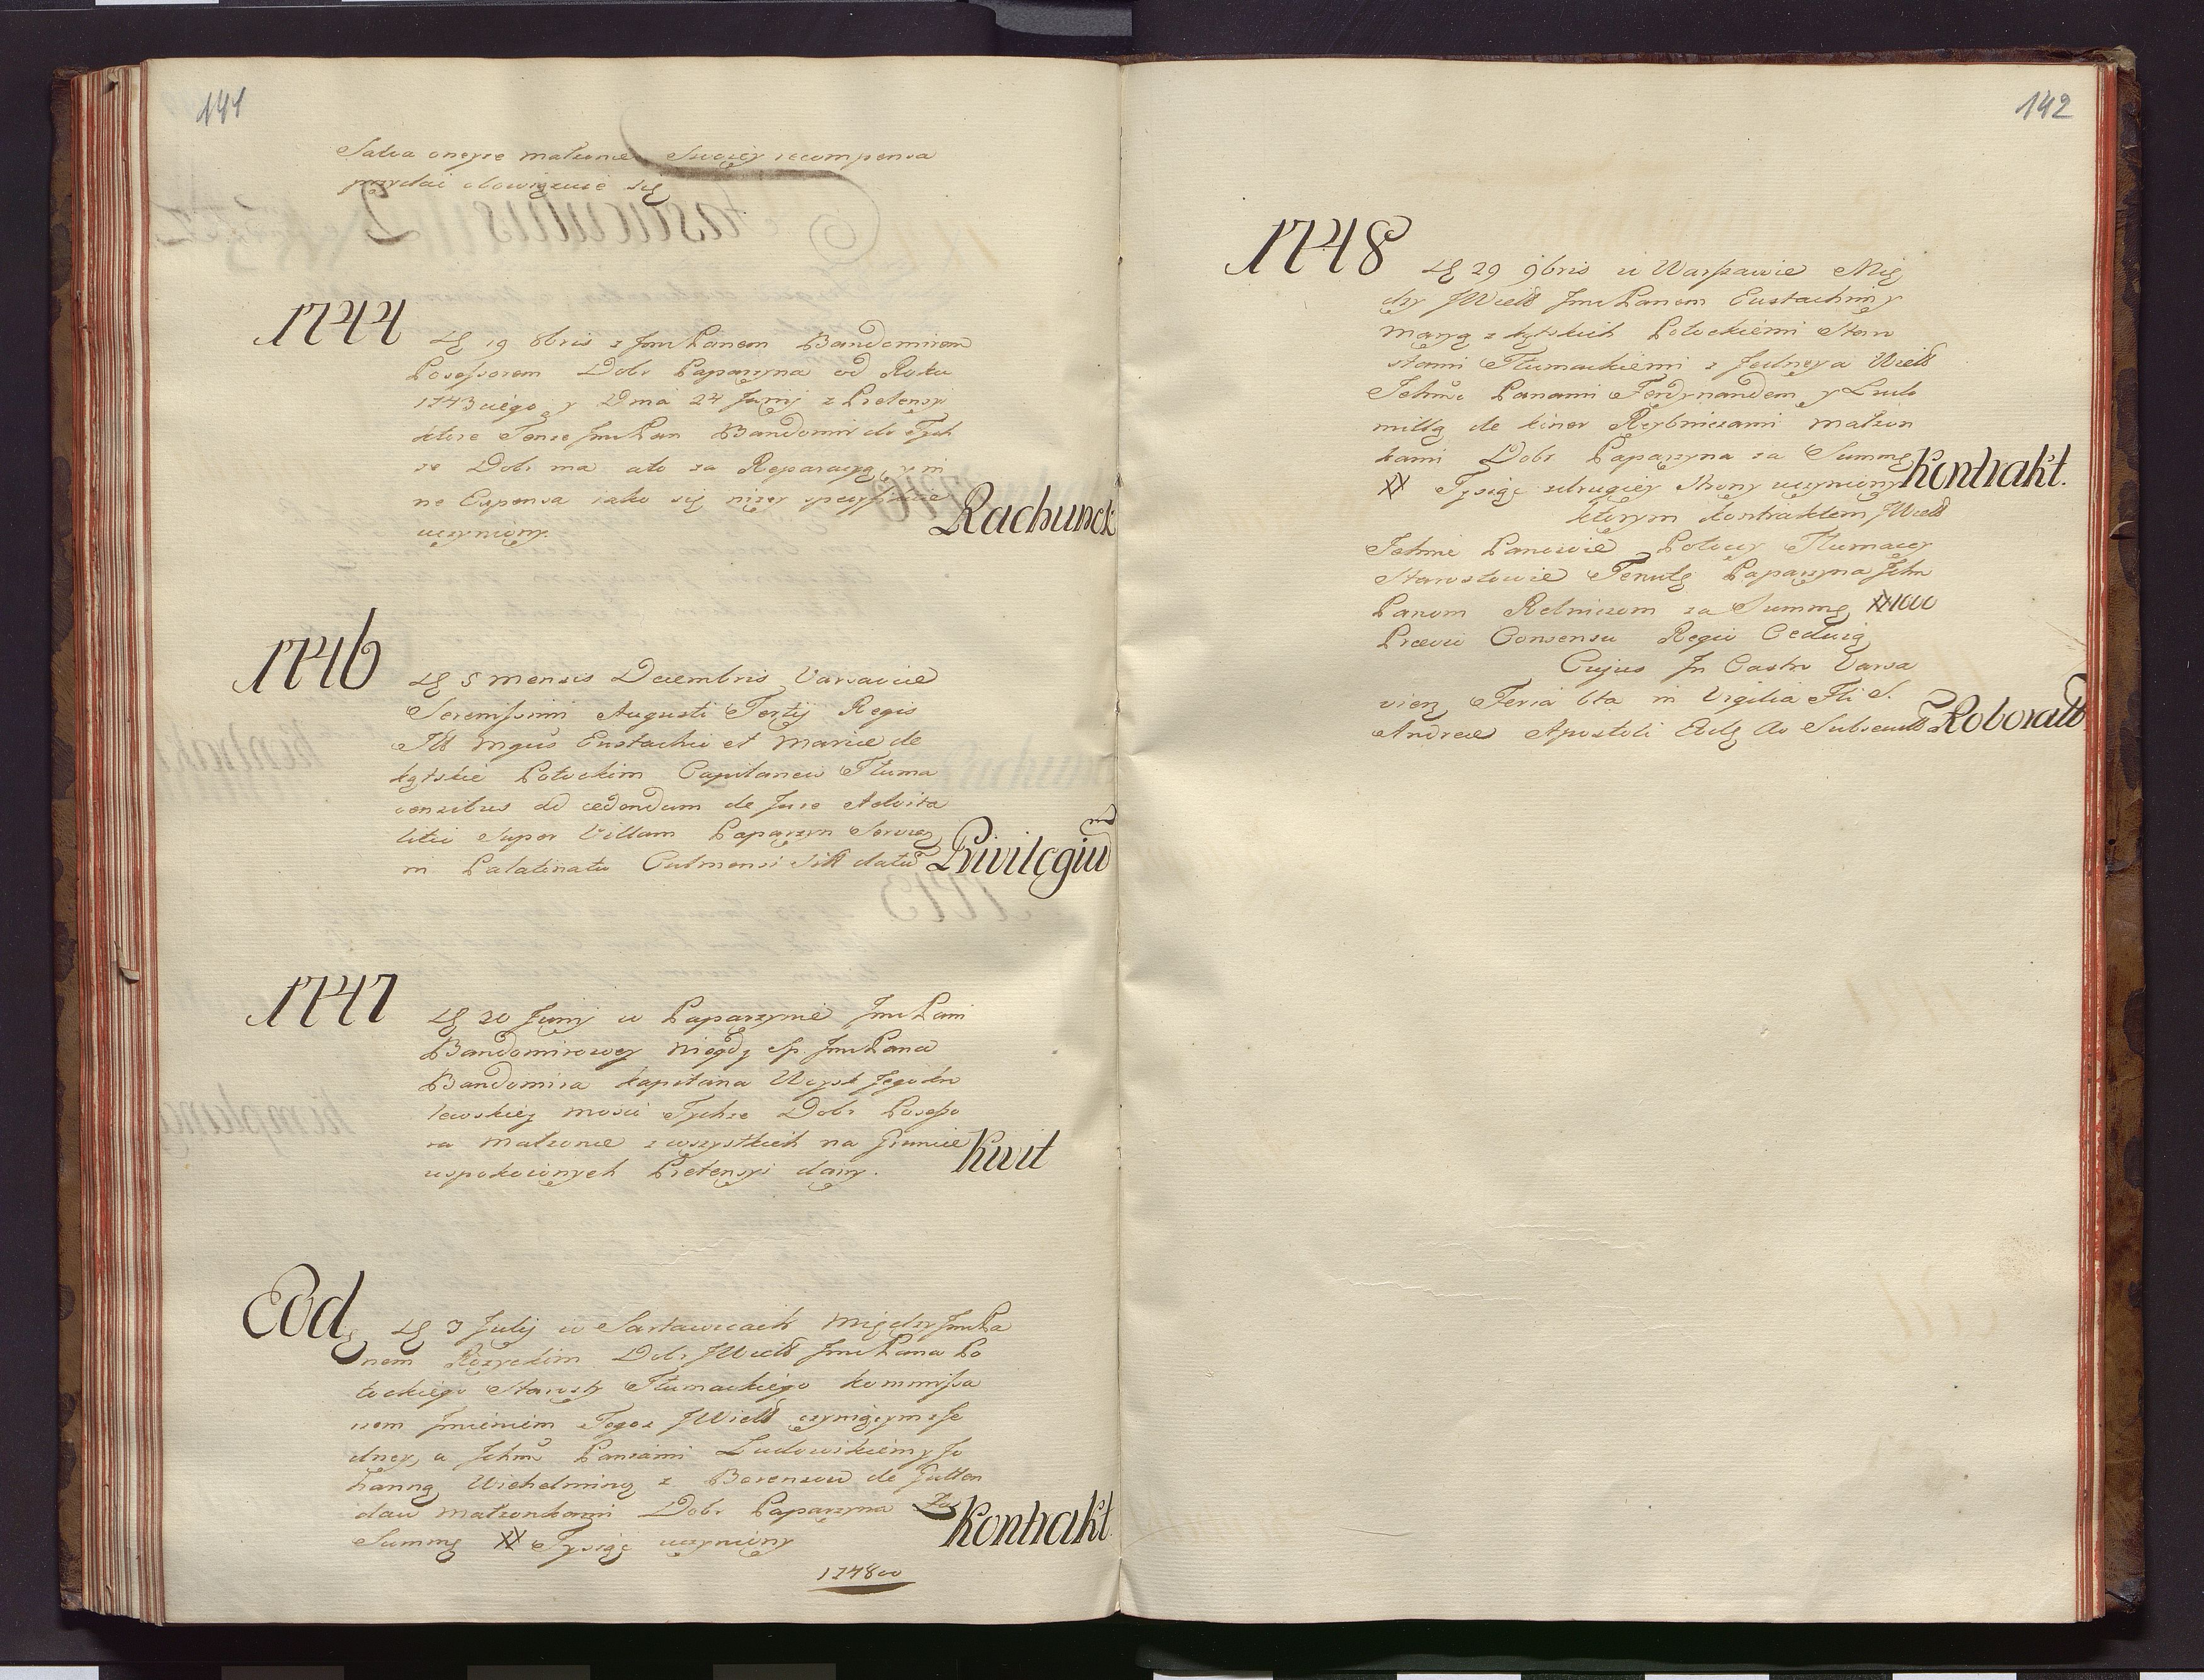 141
Salva onerze małżonce Swoiey recompensa
przydać obowiązuie się
1744
Dj 19 8bris z JmcPanem Bandomirem
Possessorem Dobr Paparzyna od Roku
1743ciego y Dnia 24 Junij z Pretensyi
ktore Tenze JmcPan Bandomir do Tych
ze Dobr ma ato za Reparacyą, y in
ne Expensa iako się nizey specyfikuie
uczyniony.
Rachunek
1746
Dj 5 mensis Decembris Varsaviae
Serenissimi Augusti Tertij Regis
Ill Mgcis Eustachio et Mariae de
Kątskie Potockim Capitaneis Tłuma
censibus ad cedendum de Jure Advita
litio Super Villam Paparzyn Servien
in Palatinatu Culmensi Sitt datū
Privilegiū
1747
Dj 20 Junij w Paparzynie JmcPani
Bandomirowey niegdy Sp JmcPana
Bandomira kapitana Woysk Jegokro
lewskiey mosci Tychze Dobr Possesso
ra małzonce z wszystkich na Gruncie
uspokoionych Pretensyi dany.
Kwit
Eod
Dj 3 Julij w Sartawicach między JmcPa
nem Rozyckim Dobr JWield JmcPana Po
tockiego Starosty Tłumackiego kommissa
rzem Jmieniem Tegoz JWield czyniącym z Je
dney, a Jchm Panami Ludowikiem y Jo
hanną Wichelminą z Borensow de Gutten
dau małzonkami Dobr Paparzyna Za
Summę XX Tysiąc uczyniony
Kontrakt
174800
142
1748
Dj 29 9bris w Warszawie Mię
dzy JWield JmcPanem Eustachim y
Maryą z kątskich Potockiemi Staro
stami Tłumackiemi z Jedney a Wield
Ichmc Panami Ferdynandem y Ludo
millą de kiner Rybniczami małzon
kami Dobr Paparzyna za Summę
XX Tysiąc zdrugiey strony uczyniony
Kontrakt.
ktorym kontraktem JWield
Ichmc Panowie Potoccy Tłumaccy
Starostowie Tenutę Paparzyna Ichm
Panom Rebniczom za Summę XX1000
Praevio Consensu Regio Ceduią
Cujus Jn Castro Varsa
vien Feria 6ta in Vigilia Fti S.
Andreae Apostoli Eodq Ao Subsecutt
Roboratt